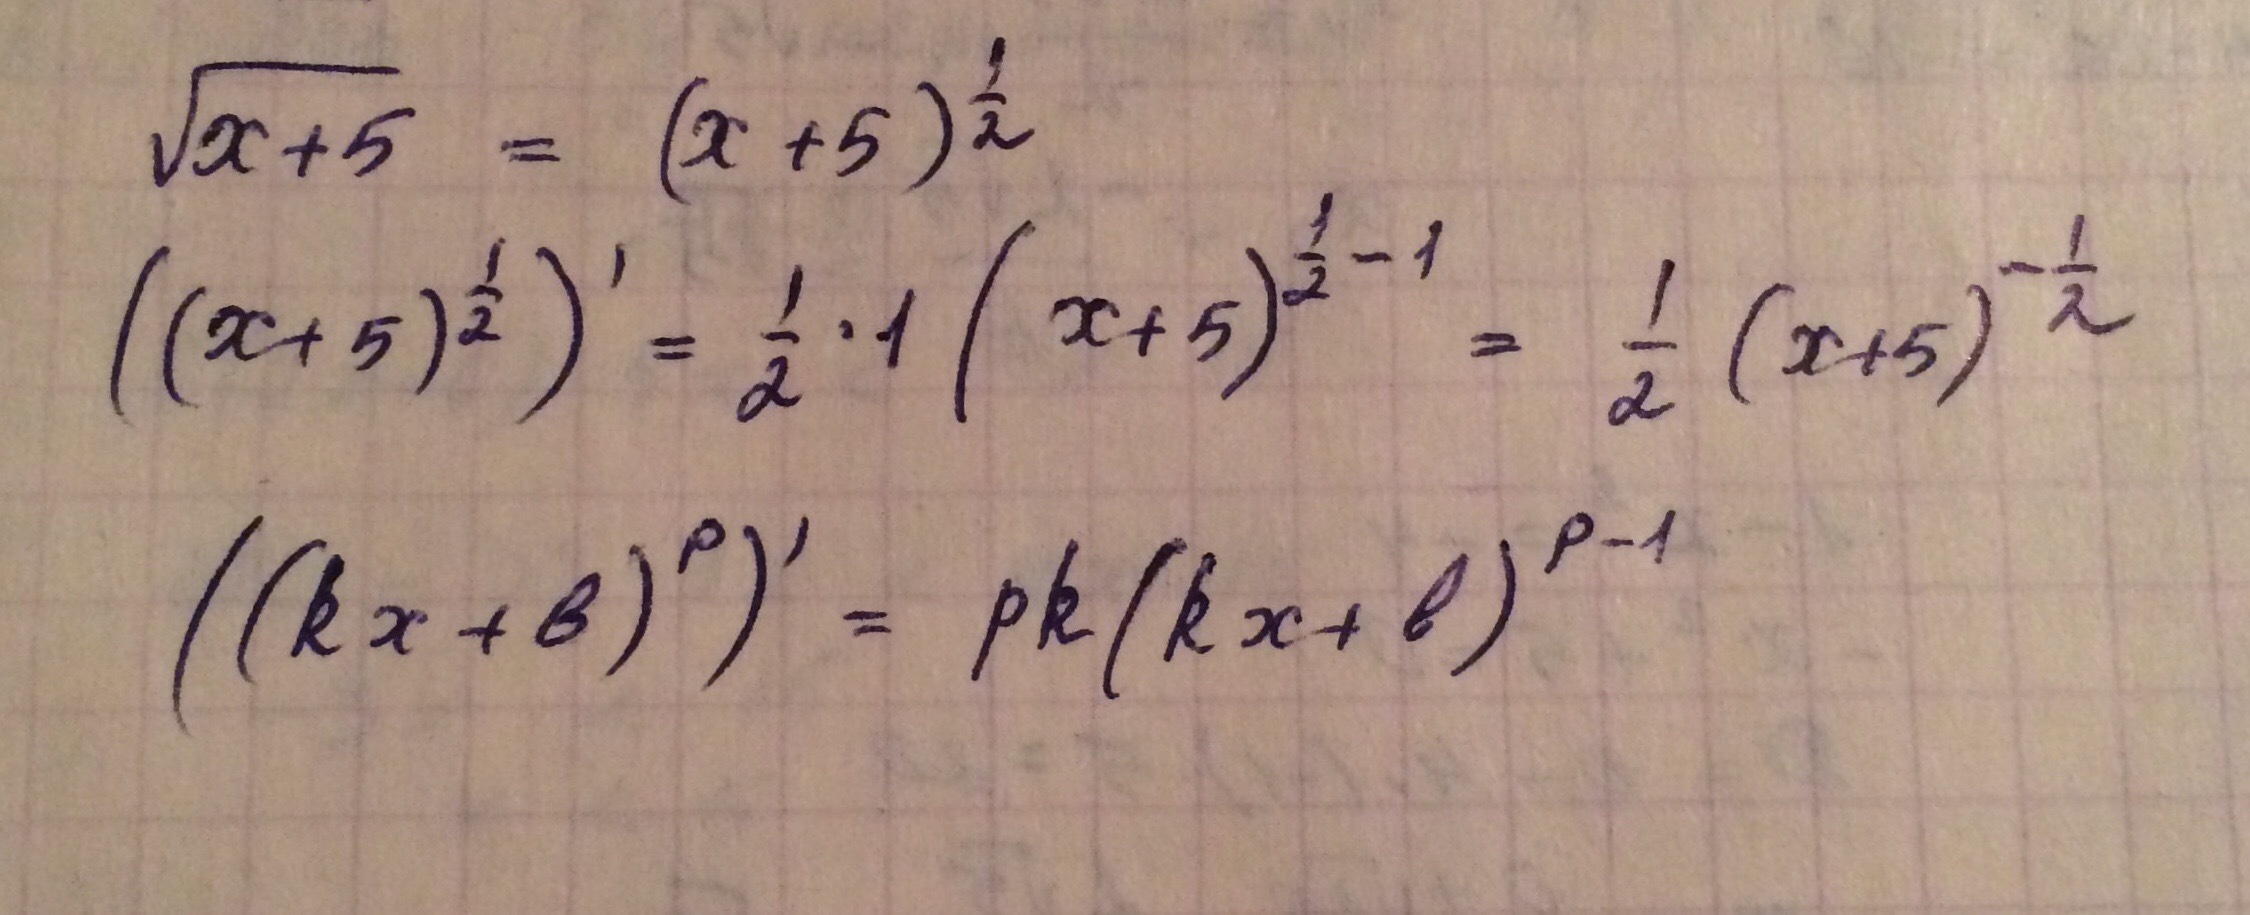 √(x+5) = (x+5)^(1/2)
((x+5)^(1/2))' = 1/2 · 1 (x+5)^(1/2 - 1) = 1/2 (x+5)^(-1/2)
((kx+b)^p)' = pk(kx+b)^(p-1)